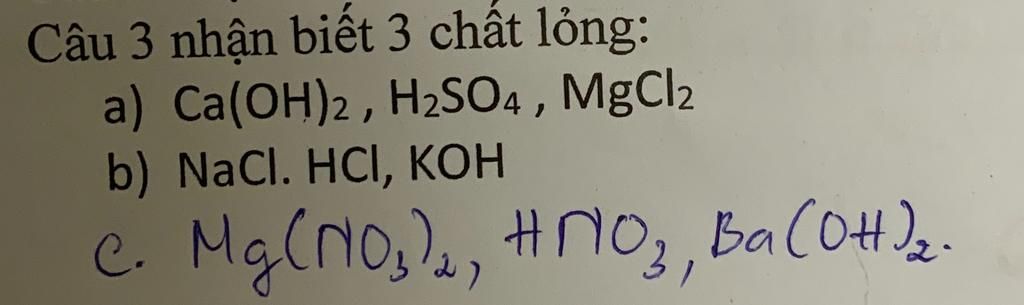 Câu 3 nhận biết 3 chất lỏng:
a) Ca(OH)2 , H2SO4 , MgCl2
b) NaCl. HCl, KOH
c. Mg(NO3)2, HNO3, Ba(OH)2.